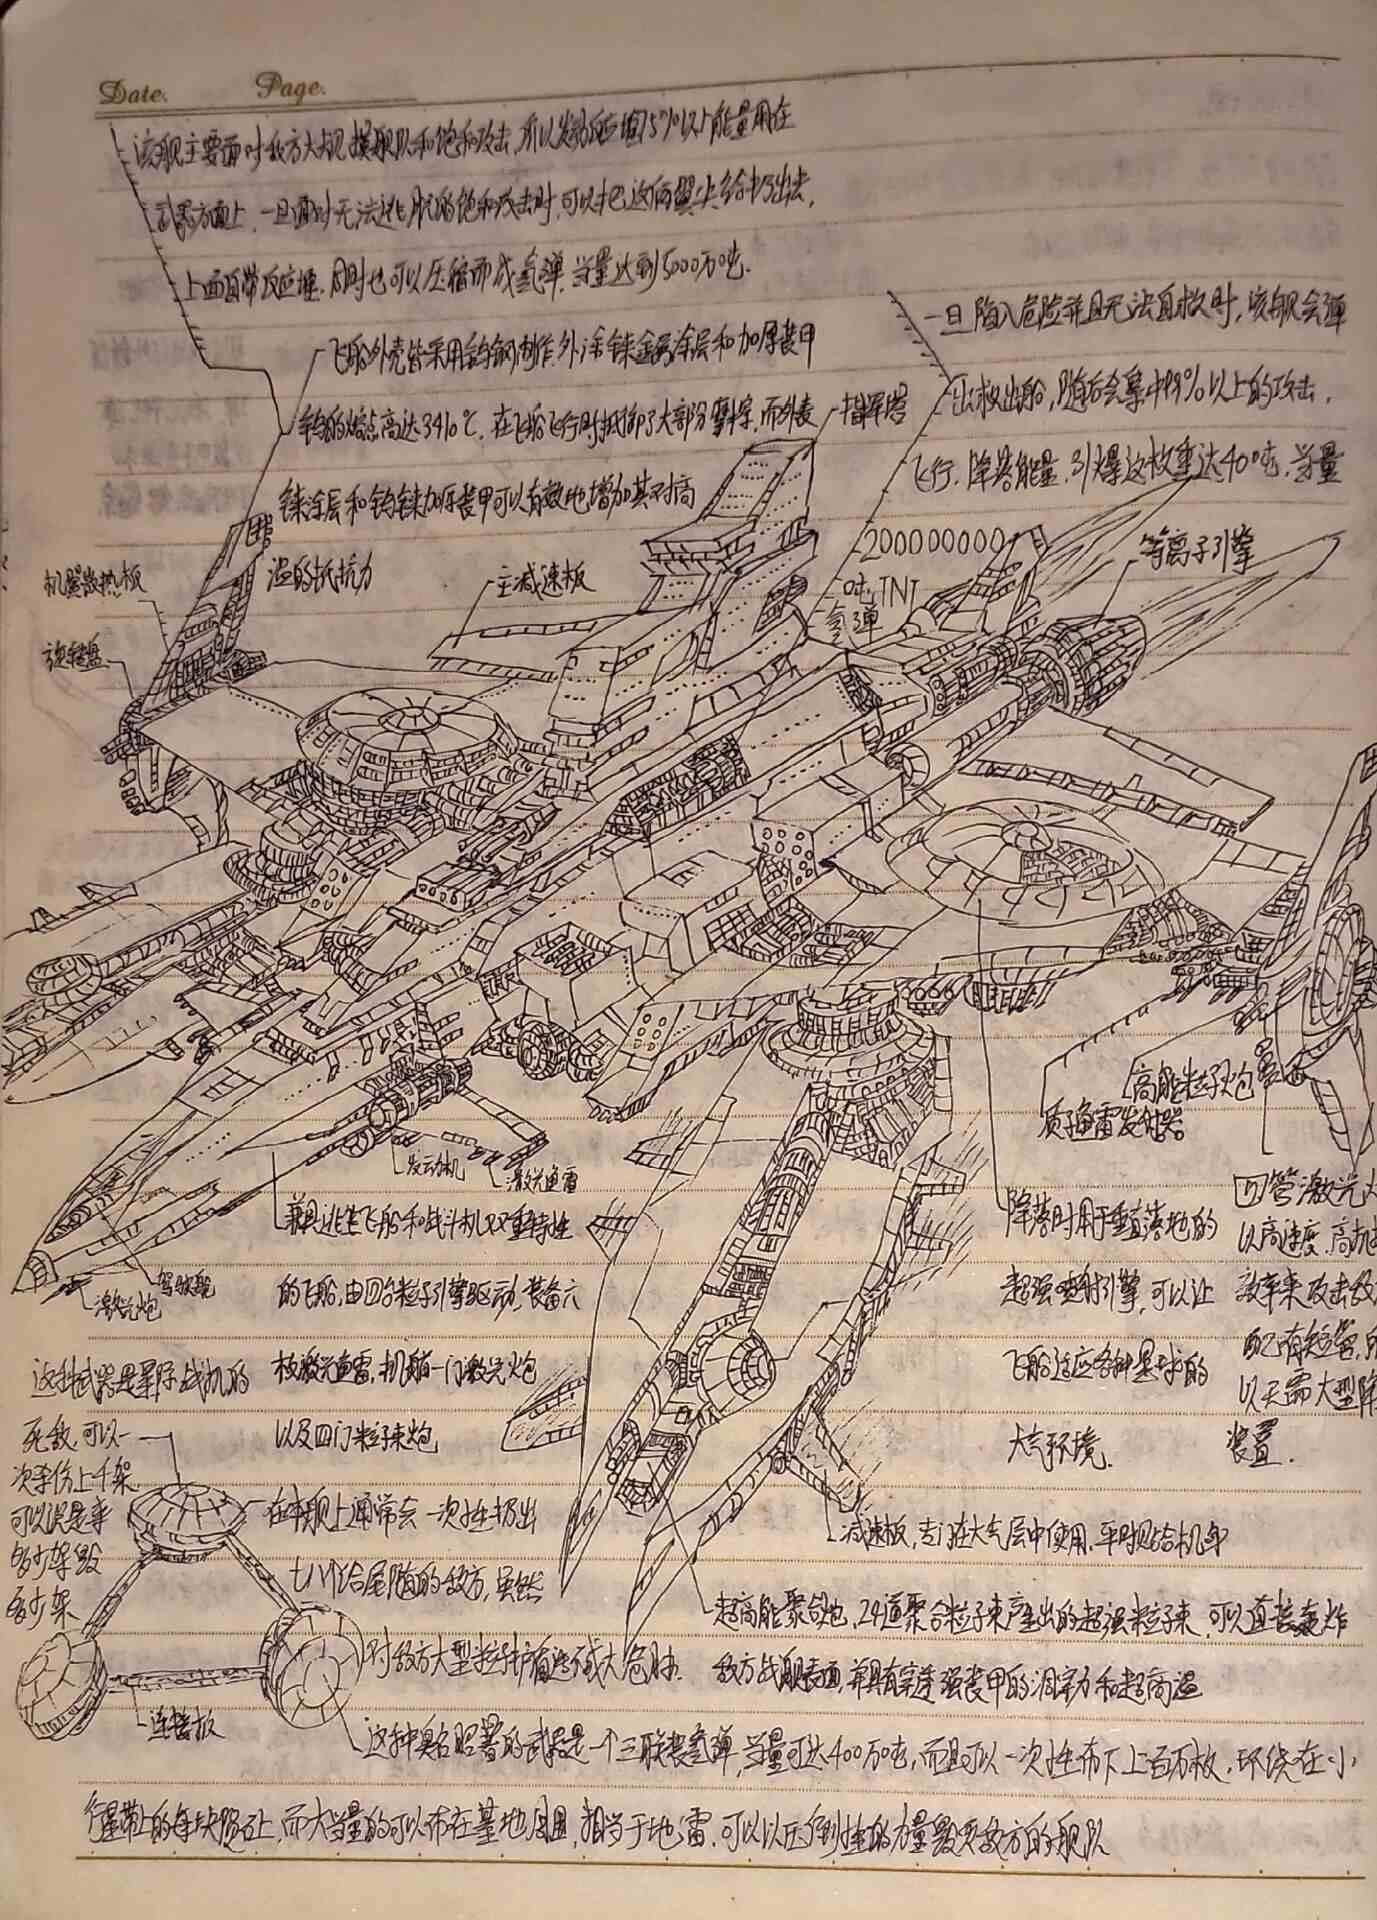 Date. Page.
该舰主要面对敌方大规模舰队和饱和攻击,所以发动反应堆75%以上能量用在
武器方面上,一旦面对无法逃脱的饱和攻击时,可以把这俩翼尖给扔出去,
上面自带反应堆.同时也可以压缩而成氢弹.当量达到5000万吨.
一旦陷入危险并且无法自救时,该舰会弹
出救出船,随后会集中99%以上的攻击,
飞行,降落能量,引爆这枚重达400吨,当量
200000000
吨TNT
氢弹
飞船外壳皆采用钨钢制作.外涂铼金属涂层和加厚装甲
钨的熔点高达3410℃,在飞船飞行时抵御了大部分摩擦,而外表
铼涂层和钨铼加厚装甲可以有效地增加其对高
温的抵抗力
指挥塔
等离子引擎
主减速板
机翼散热板
旋转盘
高能粒子火炮
质子鱼雷发射器
四管激光火
以高速度,高机
效率来攻击敌
配有短管,所
以无需大型降
装置.
降落时用于垂直落地的
超强喷射引擎,可以让
飞船适应各种星球的
大气环境.
发动机
激光鱼雷
驾驶舱
激光炮
兼具逃生飞船和战斗机双重特性
的飞船,由四台粒子引擎驱动,装备六
枚激光鱼雷,机艏一门激光炮
以及四门粒子束炮
这种武器是星际战机的
死敌,可以一
次杀伤上千架
可以说是来
多少架毁
多少架
在本舰上通常会一次性扔出
七八个给尾随的敌方,虽然
对敌方大型粒子护盾造不成大危胁.
连接板
减速板,专门在大气层中使用,平时贴合机身
超高能聚合炮,24道聚合粒子束产生出的超强粒子束,可以直接轰炸
敌方战舰表面,并具有穿透强装甲的洞穿力和超高温
这种臭名昭著的武器是一个三联装氢弹,当量可达400万吨,而且可以一次性布下上百万枚,环绕在小
行星带上的每块陨石上,而大当量的可以布在基地周围,相当于地雷,可以以压倒性的力量毁灭敌方的舰队